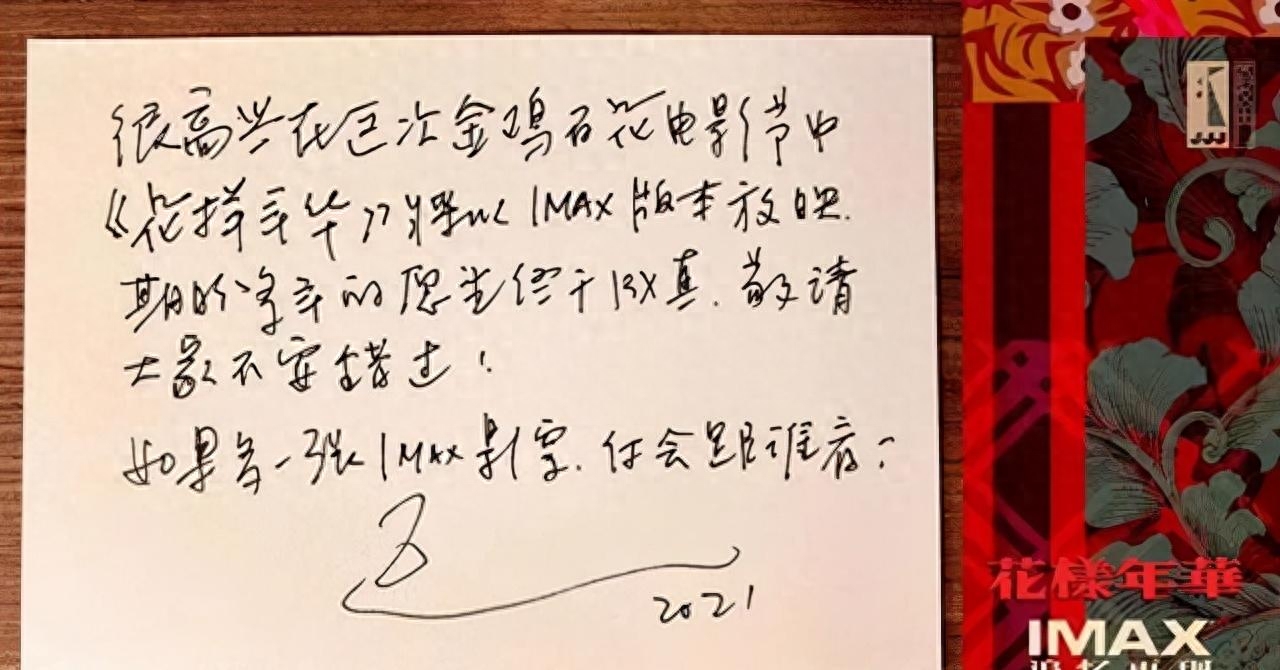 很高兴在这次金鸡百花电影节中
《花样年华》将以IMAX版本放映.
期盼多年的愿望终于成真.敬请
大家不要错过!
如果多一张IMAX影票.你会跟谁看?
2021
花樣年華
IMAX